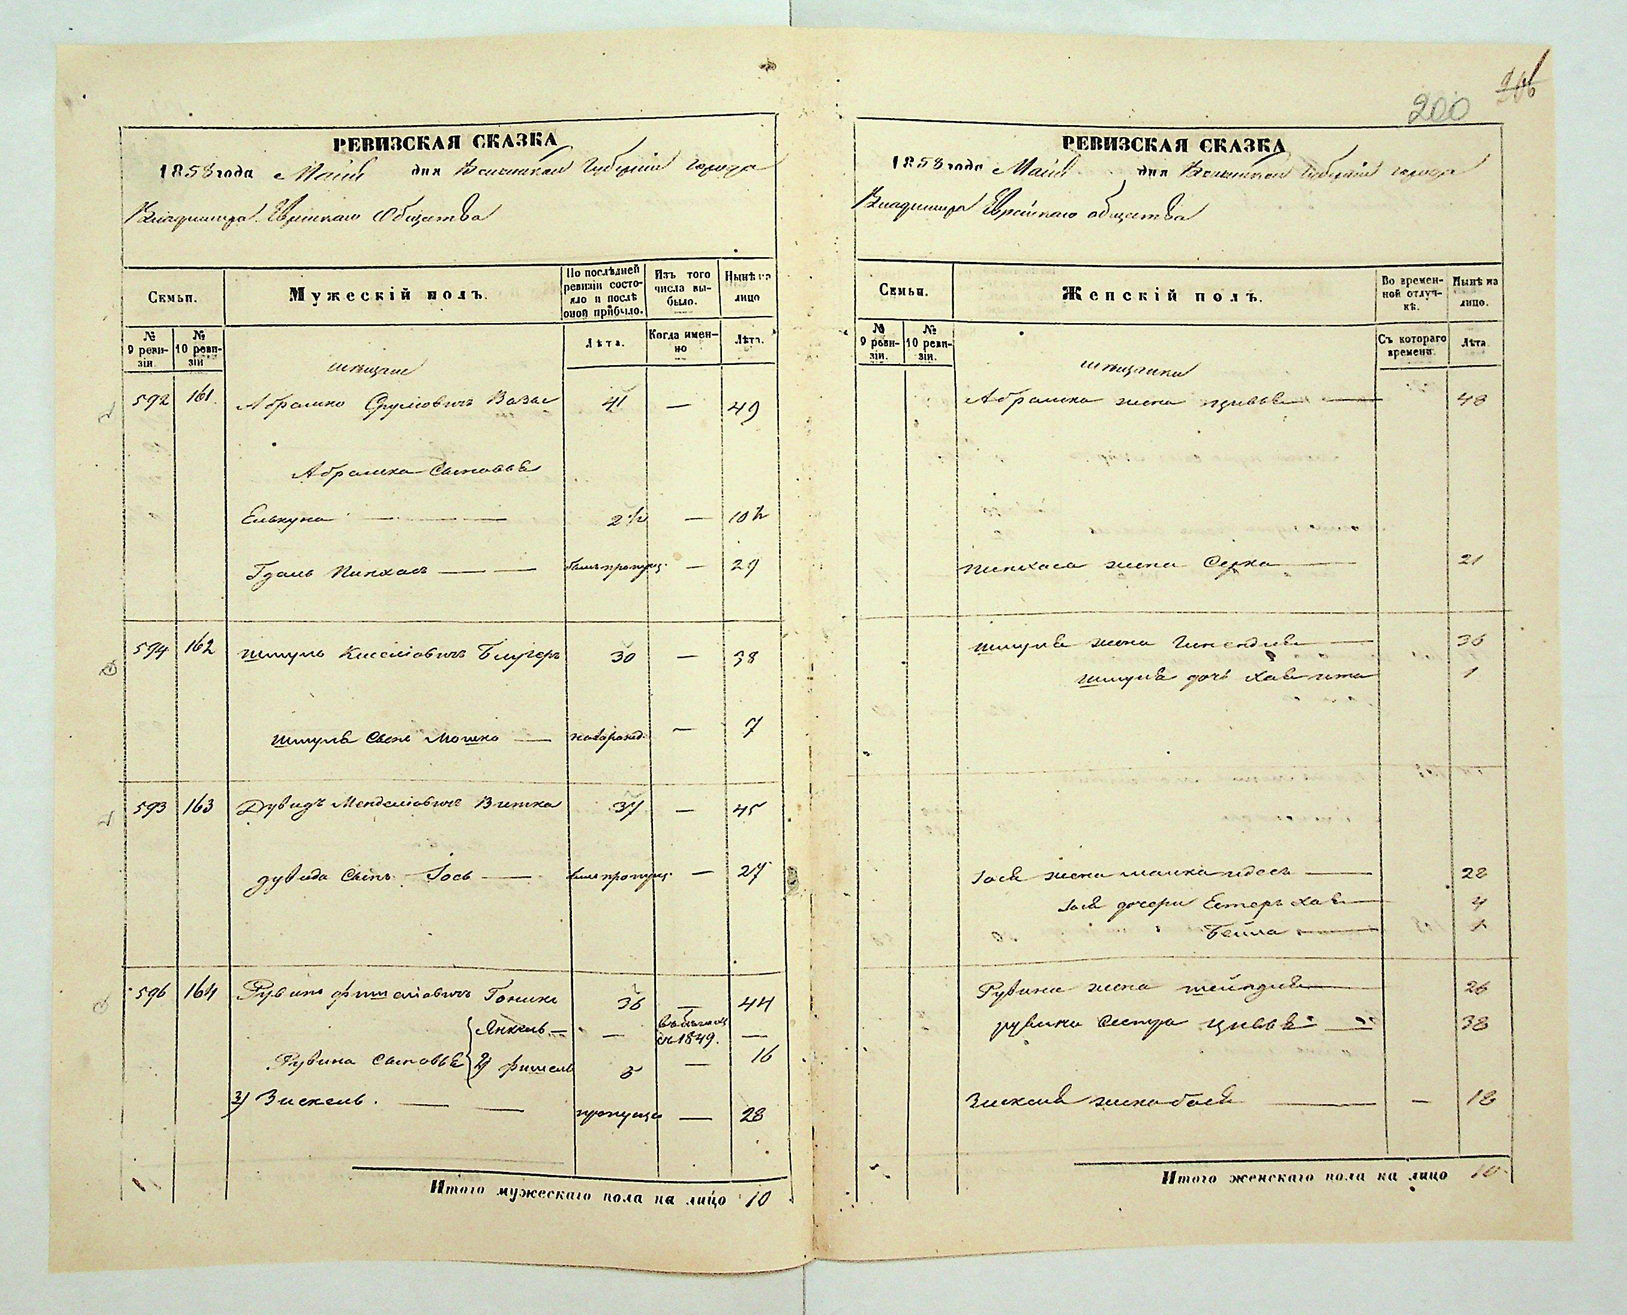 200
РЕВИЗСКАЯ СКАЗКА
1858 года Маія дня Волынской Губерніи города
Владимира Еврейскаго Общества
Семьи.
Мужескій полъ.
По послѣдней ревизіи состояло и послѣ оной прибыло.
Изъ того числа выбыло.
Нынѣ на лицо
№ 9 ревизіи.
№ 10 ревизіи
Лѣта.
Когда именно
Лѣта.
мѣщане
592 161 Абрамко Сруліовичъ 41 — 49
Абрамка Сыновья
Елькуна 2½ — 10½
Гдаль Пинхасъ былъ пропущ. — 29
594 162 Шмуль Киселіовичъ 30 — 38
Шмуля Сынъ Мошко новорожд. — 7
593 163 Дувидъ Менделіовичъ 37 — 45
Дувида Сынъ Іось былъ пропущ. — 27
596 164 Рувинъ Фишеліовичъ 36 — 44
Янкель — — въ бѣгахъ съ 1849. —
Рувина Сыновья 2) Фишель 8 — 16
3) Зискель. пропущен — 28
Итого мужескаго пола на лицо 10
РЕВИЗСКАЯ СКАЗКА
1858 года Маія дня Волынской Губерніи города
Владимира Еврейскаго общества
Семьи.
Женскій полъ.
Во временной отлучкѣ.
Нынѣ на лицо.
№ 9 ревизіи.
№ 10 ревизіи.
Съ котораго времени.
Лѣта.
мѣщанки
Абрамка жена Цивья 48
Пинхаса жена Сурка 21
Шмуля жена 36
Шмуля дочь Хая Ита 1
Іося жена 22
Іося дочери Естеръ Хая 4
Бейла 1
Рувина жена Шейндля 26
Рувина Сестра Цивья 38
Зискеля жена Бася — 18
Итого женскаго пола на лицо 10